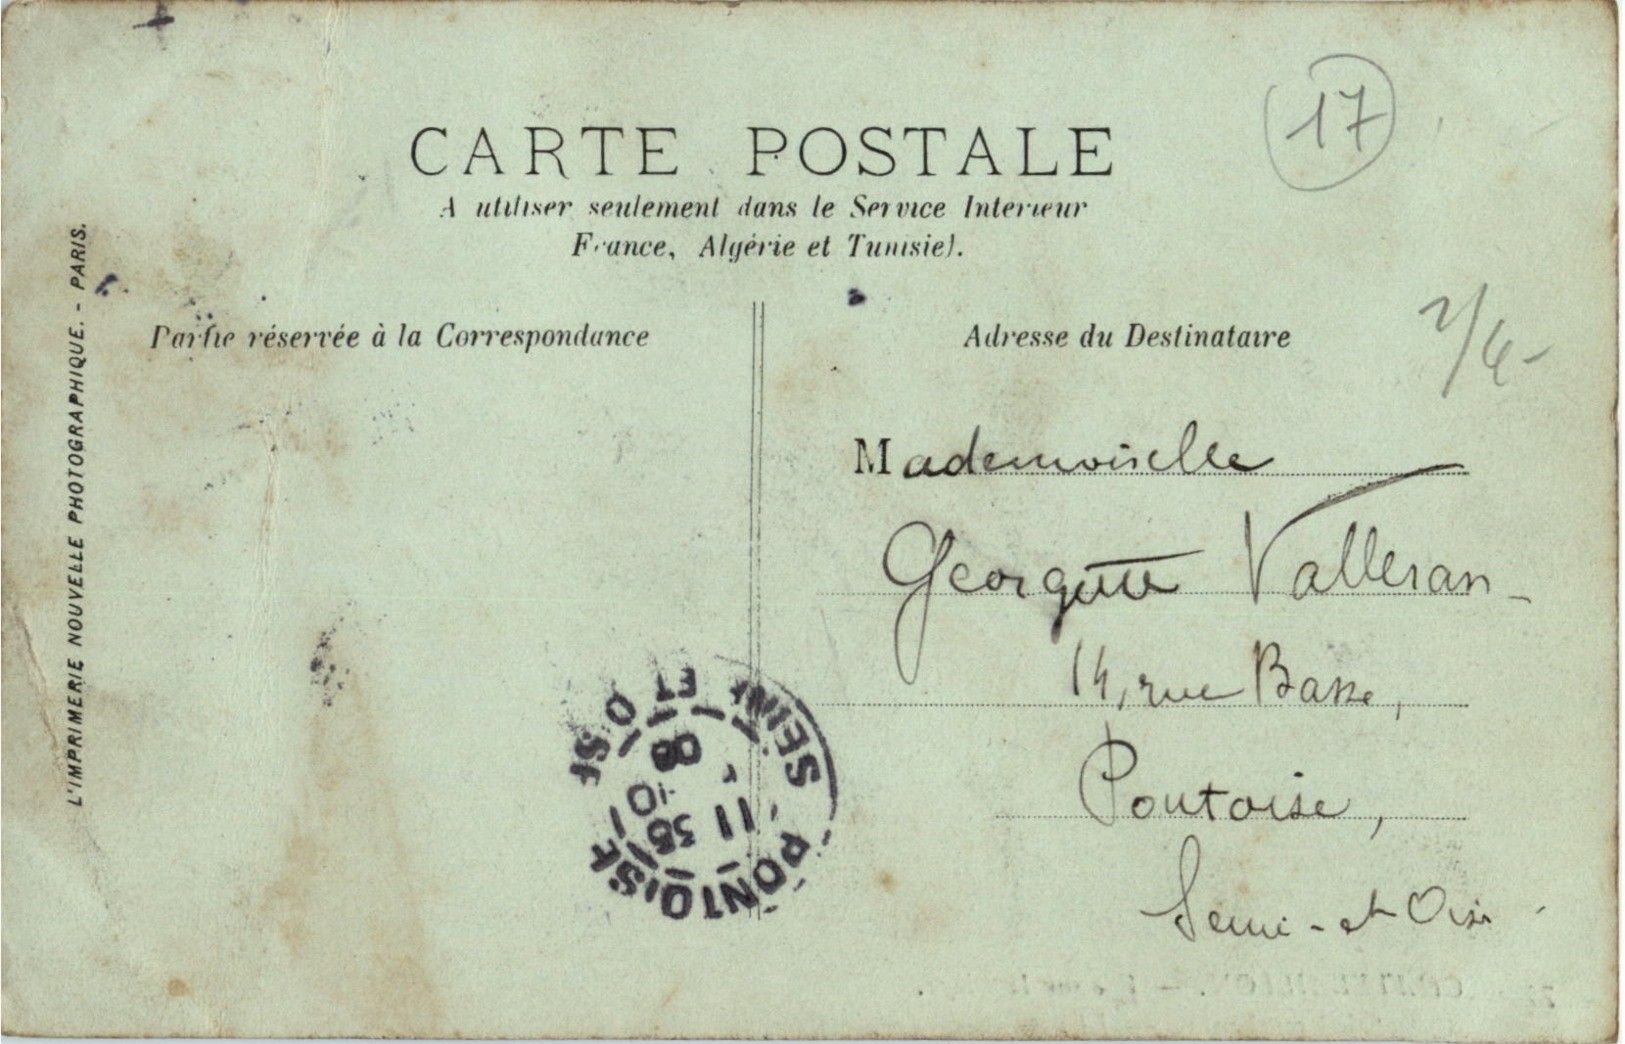 CARTE POSTALE
A utiliser seulement dans le Service Interieur
France, Algérie et Tunisie).
Partie réservée à la Correspondance
Adresse du Destinataire
L'IMPRIMERIE NOUVELLE PHOTOGRAPHIQUE. - PARIS.
17
Mademoiselle
Georgette Valleran
14, rue Basse,
Pontoise,
Seine-et Oise
PONTOISE
SEINE ET OISE
11
08